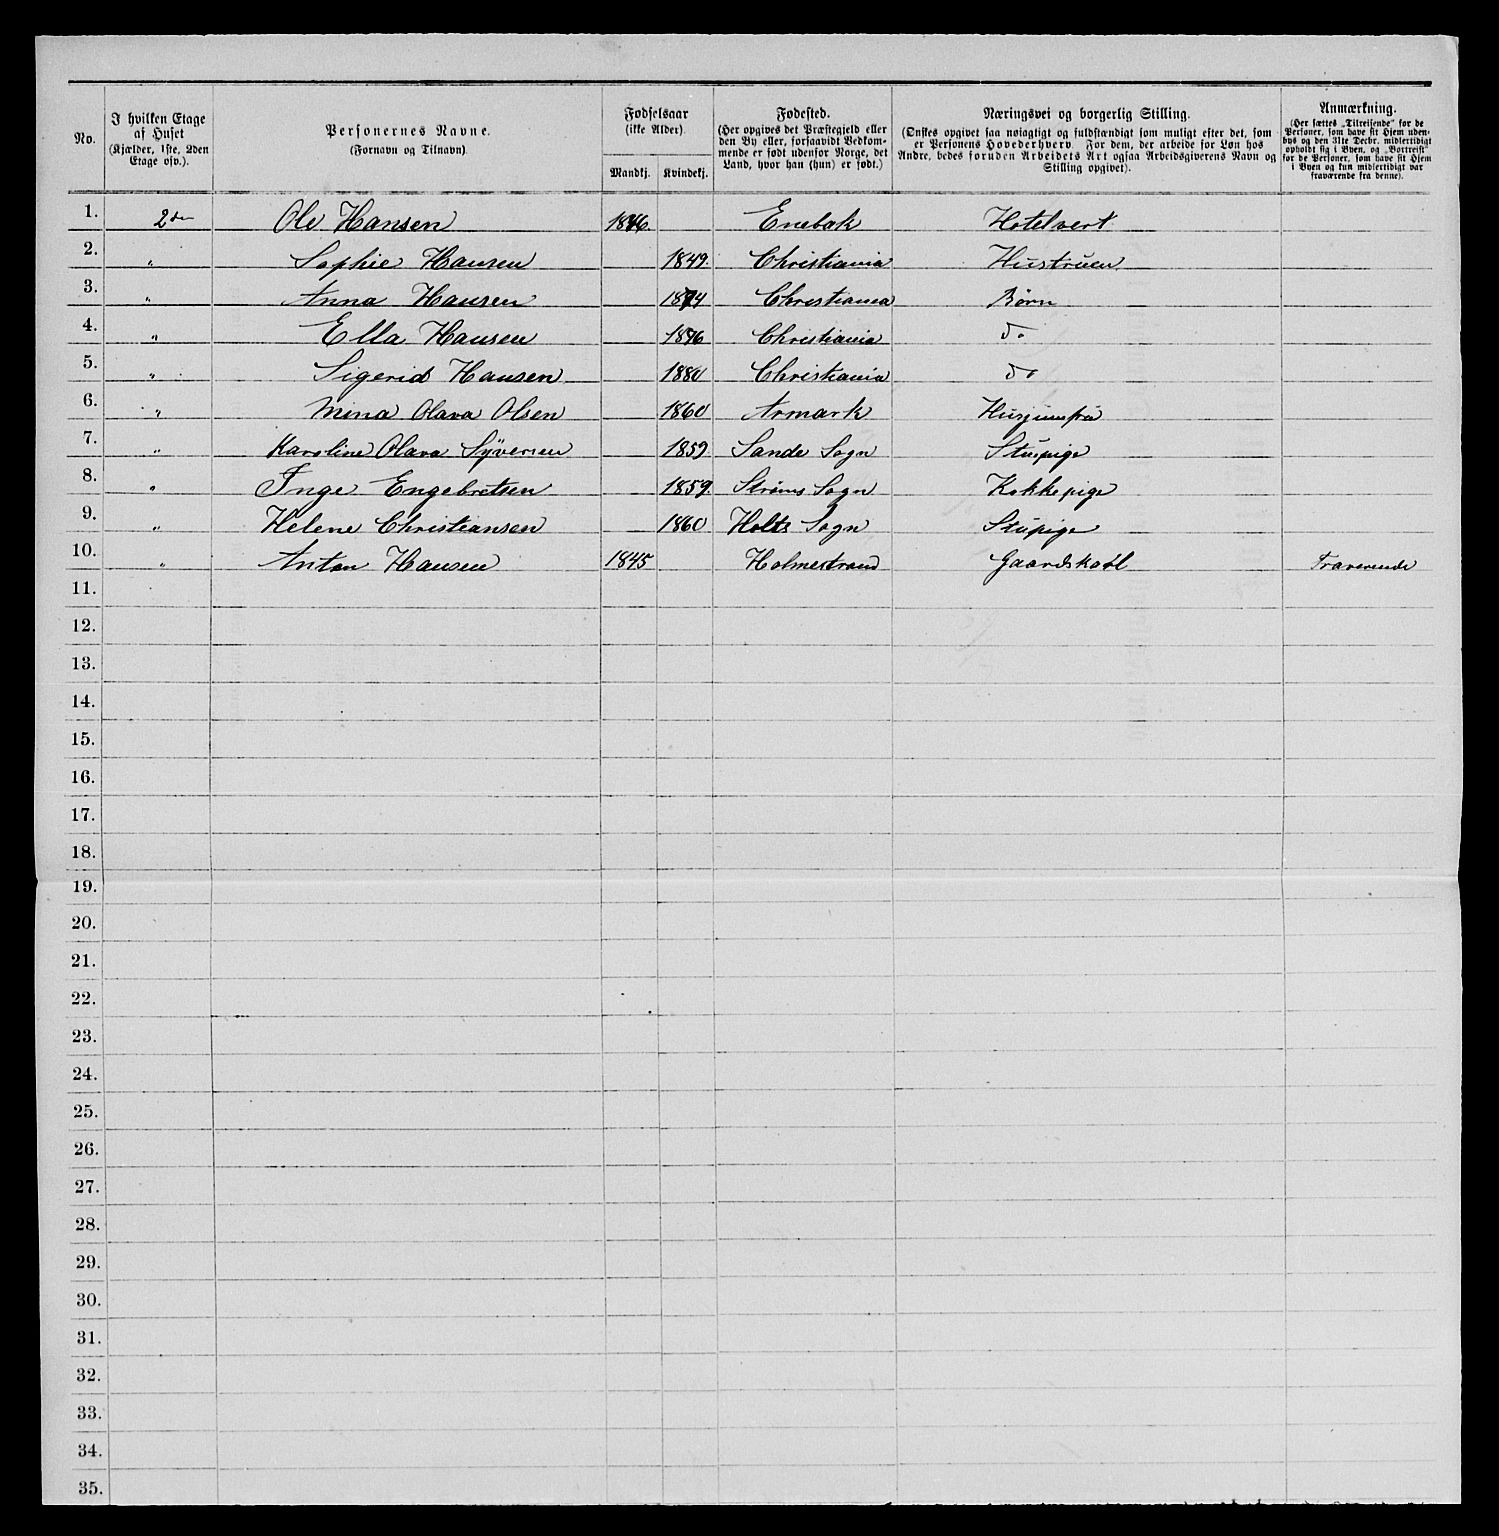 No.
I hvilken Etage af Huset (Kjælder, 1ste, 2den Etage osv.).
Personernes Navne. (Fornavn og Tilnavn).
Fødselsaar (ikke Alder).
Mandkj. Kvindekj.
Fødested. (Her opgives det Præstegjeld eller den By eller, forsaavidt Vedkommende er født udenfor Norge, det Land, hvor han (hun) er født.)
Næringsvei og borgerlig Stilling. (Ønskes opgivet saa nøiagtigt og fuldstændigt som muligt efter det, som er Personens Hovederhverv. For dem, der arbeide for Løn hos Andre, bedes foruden Arbeidets Art ogsaa Arbeidsgiverens Navn og Stilling opgivet).
Anmærkning. (Her sættes „Tilreisende“ for de Personer, som have sit Hjem udenbys og den 31te Decbr. midlertidigt opholdt sig i Byen, og „Bortreist“ for de Personer, som have sit Hjem i Byen og kun midlertidigt var fraværende fra denne).
1. 2den Ole Hansen 1846. Enebak Hotelvert
2. " Sophie Hansen 1849. Christiania Hustruen
3. " Anna Hansen 1874 Christiania Børn
4. " Ella Hansen 1876 Christiania do
5. " Sigerid Hansen 1880 Christiania do
6. " Mina Olava Olsen 1860 Armark Husjumfru
7. " Karoline Olava Syversen 1859 Sande Sogn Stupige
8. " Inge Engebretsen 1859. Strøms Sogn Kokkepige
9. " Helene Christiansen 1860 Holts Sogn Stupige
10. " Anton Hansen 1845 Holmestrand Gaardskarl
11.
12.
13.
14.
15.
16.
17.
18.
19.
20.
21.
22.
23.
24.
25.
26.
27.
28.
29.
30.
31.
32.
33.
34.
35.